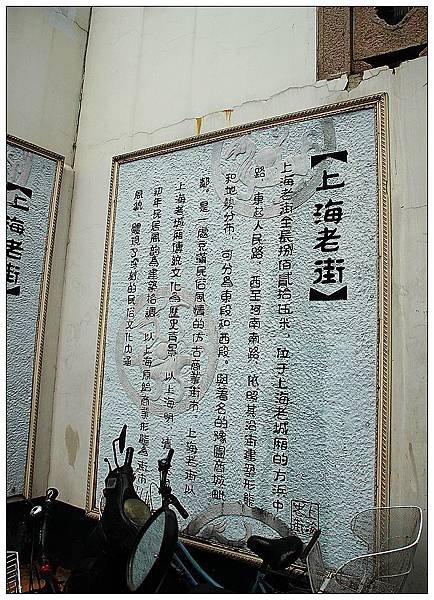 【上海老街】
上海老街全長捌佰貳拾伍米，位于上海老城厢的方浜中
路，東起人民路，西至河南南路，依照其沿街建築形態
和地勢分布，可分為東段和西段。與著名的豫園商城毗
鄰，是一處充滿民俗風情的仿古商業街市。上海老街以
上海老城厢傳統文化為歷史背景，以上海明、清
初年民居風韵為建築格調，以上海原始商業形態為街市
風貌，體現了深刻的民俗文化内涵
上海老街